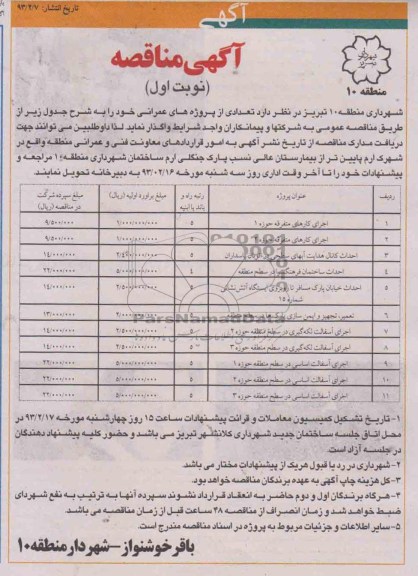 تاریخ انتشار: ۹۳/۲/۷
آگهی
آگهی مناقصه
(نوبت اول)
شهرداری تبریز
منطقه ۱۰
شهرداری منطقه ۱۰ تبریز در نظر دارد تعدادی از پروژه های عمرانی خود را به شرح جدول زیر از
طریق مناقصه عمومی به شرکتها و پیمانکاران واجد شرایط واگذار نماید لذا داوطلبین می توانند جهت
دریافت مدارک مناقصه از تاریخ نشر آگهی به امور قراردادهای معاونت فنی و عمرانی منطقه واقع در
شهرک ارم پایین تر از بیمارستان عالی نسب پارک جنگلی ارم ساختمان شهرداری منطقه۱۰ مراجعه و
پیشنهادات خود را تا آخر وقت اداری روز سه شنبه مورخه ۹۳/۰۲/۱۶ به دبیرخانه تحویل نمایند
ردیف عنوان پروژه رتبه راه و باند یا ابنیه مبلغ براورد اولیه (ریال) مبلغ سپرده شرکت در مناقصه (ریال)
۱ اجرای کارهای متفرقه حوزه ۱ ۵ ۱/۰۰۰/۰۰۰/۰۰۰ ۹/۵۰۰/۰۰۰
۲ اجرای کارهای متفرقه حوزه ۵ ۹/۵۰۰/۰۰۰
۳ احداث کانال هدایت آبهای سطحی پاسداران ۵ ۱۴/۰۰۰/۰۰۰
۴ احداث ساختمان فرهنگی در سطح منطقه ۵ ۲۲/۰۰۰/۰۰۰
۵ احداث خیابان پارک مسافر تا ایستگاه آتش نشانی شماره ۱۵ ۵ ۱۴/۰۰۰/۰۰۰
۶ تعمیر، تجهیز و ایمن سازی ۵ ۱۳/۰۰۰/۰۰۰
۷ اجرای آسفالت لکه گیری در سطح منطقه حوزه ۲ ۵ ۱۴/۰۰۰/۰۰۰
۸ اجرای آسفالت لکه گیری در سطح منطقه حوزه ۳ ۵ ۱۴/۰۰۰/۰۰۰
۹ اجرای آسفالت اساسی در سطح منطقه حوزه ۱ ۵ ۵/۰۰۰/۰۰۰/۰۰۰ ۲۲/۰۰۰/۰۰۰
۱۰ اجرای آسفالت اساسی در سطح منطقه حوزه ۲ ۵ ۵/۰۰۰/۰۰۰/۰۰۰ ۲۲/۰۰۰/۰۰۰
۱۱ اجرای آسفالت اساسی در سطح منطقه حوزه ۳ ۵ ۵/۰۰۰/۰۰۰/۰۰۰ ۲۲/۰۰۰/۰۰۰
ParsNamadData
۱- تاریخ تشکیل کمیسیون معاملات و قرائت پیشنهادات ساعت ۱۵ روز چهارشنبه مورخه ۹۳/۲/۱۷ در
محل اتاق جلسه ساختمان جدید شهرداری کلانشهر تبریز می باشد و حضور کلیه پیشنهاد دهندگان
در جلسه آزاد است.
۲- شهرداری در رد یا قبول هریک از پیشنهادات مختار می باشد.
۳-کل هزینه چاپ آگهی به عهده برندگان مناقصه خواهد بود.
۴- هرگاه برندگان اول و دوم حاضر به انعقاد قرارداد نشوند سپرده آنها به ترتیب به نفع شهرداری
ضبط خواهد شد و زمان انصراف از مناقصه ۴۸ ساعت قبل از زمان مناقصه می باشد.
۵-سایر اطلاعات و جزئیات مربوط به پروژه در اسناد مناقصه مندرج است.
باقر خوشنواز - شهردار منطقه ۱۰